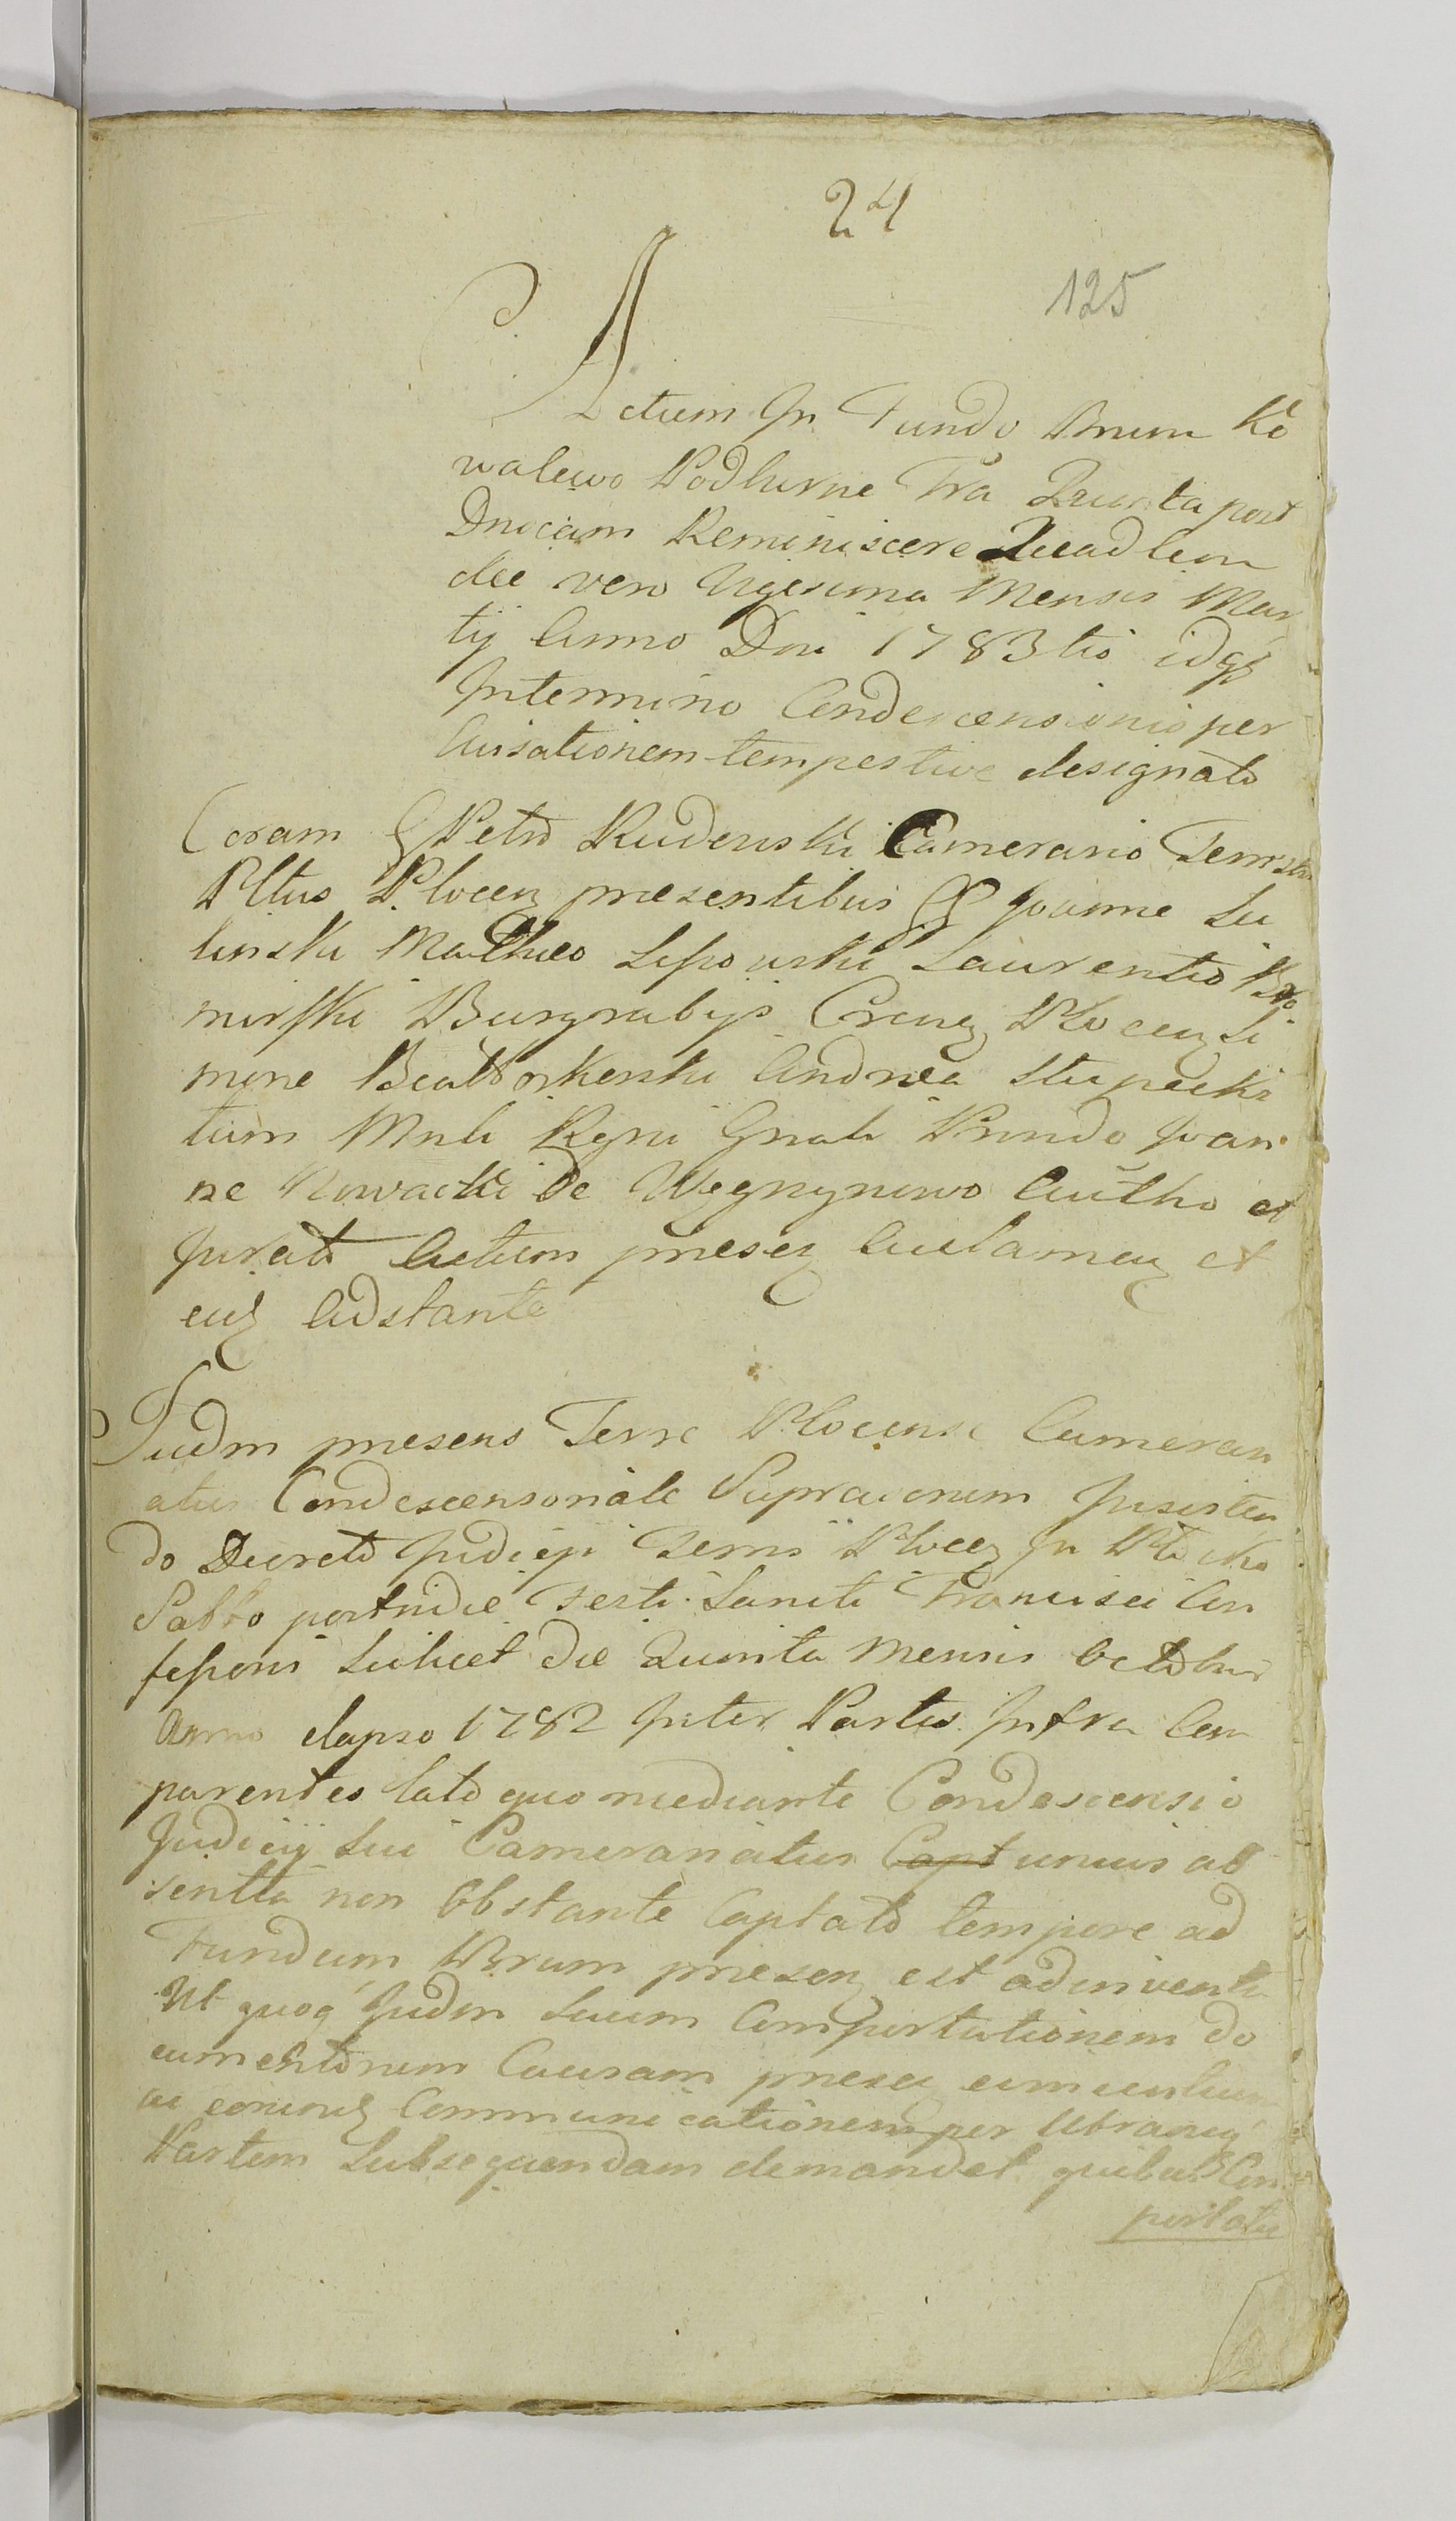 24
125
Actum In Fundo Bnum Ko
walewo Podhurne Fra Quinta post
Dnicam Reminiscere Quadlem
die vero Vigesima Mensis Mar
tij Anno Dni 1783tio idqz
Intermino Condescensionis per
Avisationem tempestive designato
Coram G Petro Rudenski Camerario Terrstri
Pltus Plocen presentibus GG Joanne Lu
linski Matheo Lipowski Laurentio Bro
mirski Burgrabijs Crcnz Plocenz Si
mone Andrea Stupecki
tum Mnli Regni Gnali Prvndo Joan
ne Nowacki De Autho et
Jurato actum presez Acclamanz et
euz Adstante
Judm presens Terre Plocense Camerari
atus Condescensoriale Supra Bonum Insisten
do Decreto Judicij Terris Plocenz In Plocko
Sabbo postridie Festi Sancti Francisci Con
fessoris Scilicet die Quinta Mensis Octobris
Anno elapso 1782 Inter Partes Infra Com
parentes lato quo mediante Condescensio
Judicij Sui Camerariatus Capt unius ab
sentia non Obstante Captato tempore ad
Fundum Brum presenz est adinventa
Ut quoq Judm Suum Comportationem do
cumentorum Causam presez
ac eorumz Communicationem per Utramq
Partem Subsequendam demandet quibus Com
portatis